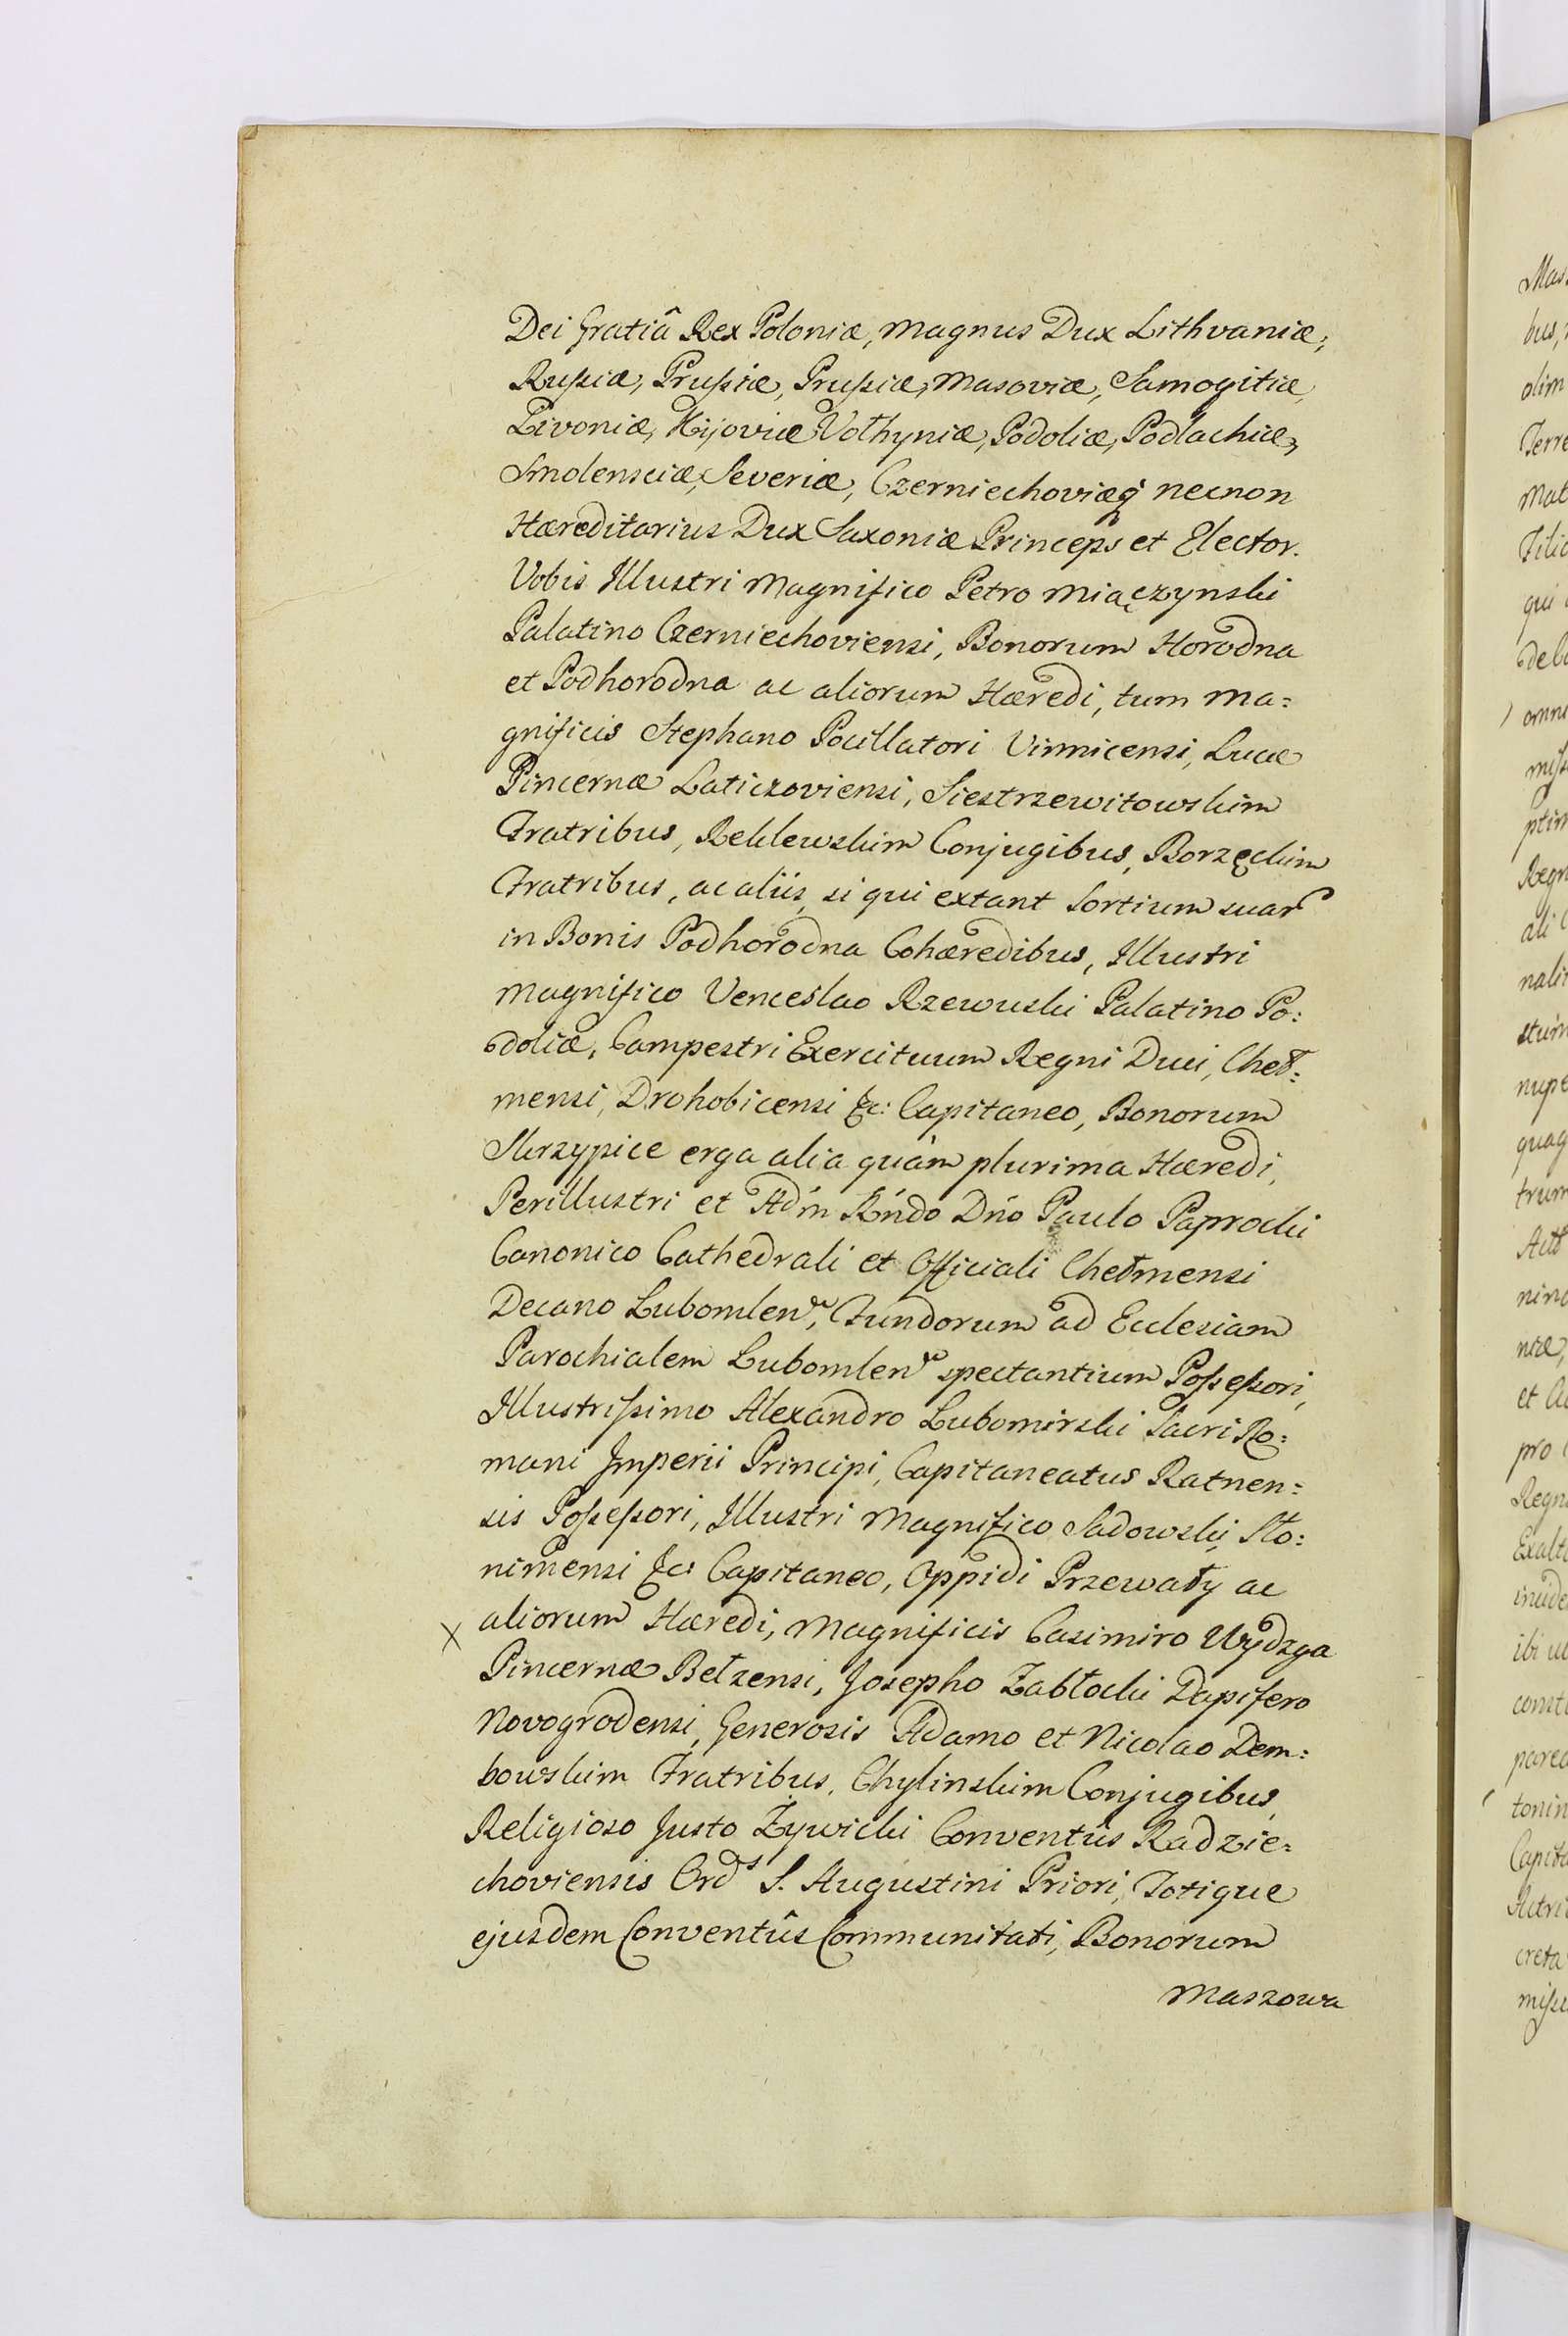 Dei Gratiâ Rex Poloniæ, Magnus Dux Lithvaniæ,
Rußiæ, Prußiæ, Prußiæ, Masoviæ, Samogitiæ,
Livoniæ, Kijoviæ Vołhyniæ, Podoliæ, Podlachiæ,
Smolensciæ, Severiæ, Czerniechoviæq́ necnon
Hæreditarius Dux Saxoniæ Princeps et Elector.
Vobis Illustri Magnifico Petro Miączynski
Palatino Czerniechoviensi, Bonorum Horodna
et Podhorodna ac aliorum Hæredi, tum Ma:
gnificis Stephano Pocillatori Vinnicensi, Lucæ
Pincernæ Laticzoviensi, Siestrzewitowskim
Fratribus, Reklewskim Conjugibus, Borzęckim
Fratribus, ac aliis, si qui extant Sortium suar
in Bonis Podhorodna Cohæredibus, Illustri
Magnifico Venceslao Rzewuski Palatino Po:
doliæ, Campestri Exercituum Regni Duci, Cheł:
mensi, Drohobicensi &c: Capitaneo, Bonorum
Skrzypice erga alia quàm plurima Hæredi,
Perillustri et Adm̃ Rńdo Dńo Paulo Paprocki
Canonico Cathedrali et Officiali Chełmensi
Decano Lubomlen, Fundorum ad Ecclesiam
Parochialem Lubomlen spectantium Poßeßori,
Illustrißimo Alexandro Lubomirski Sacri Ro:
mani Imperii Principi, Capitaneatus Ratnen:
sis Poßeßori, Illustri Magnifico Sadowski, Sło:
nimensi &c: Capitaneo, Oppidi Przewały ac
X aliorum Hæredi, Magnificis Casimiro Wydzga
Pincernæ Bełzensi, Josepho Zabłocki Dapifero
Novogrodensi, Generosis Adamo et Nicolao Dem:
bowskim Fratribus, Chylinskim Conjugibus,
Religioso Justo Żywicki Conventûs Radzie:
choviensis Ords S. Augustini Priori, Totique
ejusdem Conventûs Communitati, Bonorum
Maszowa